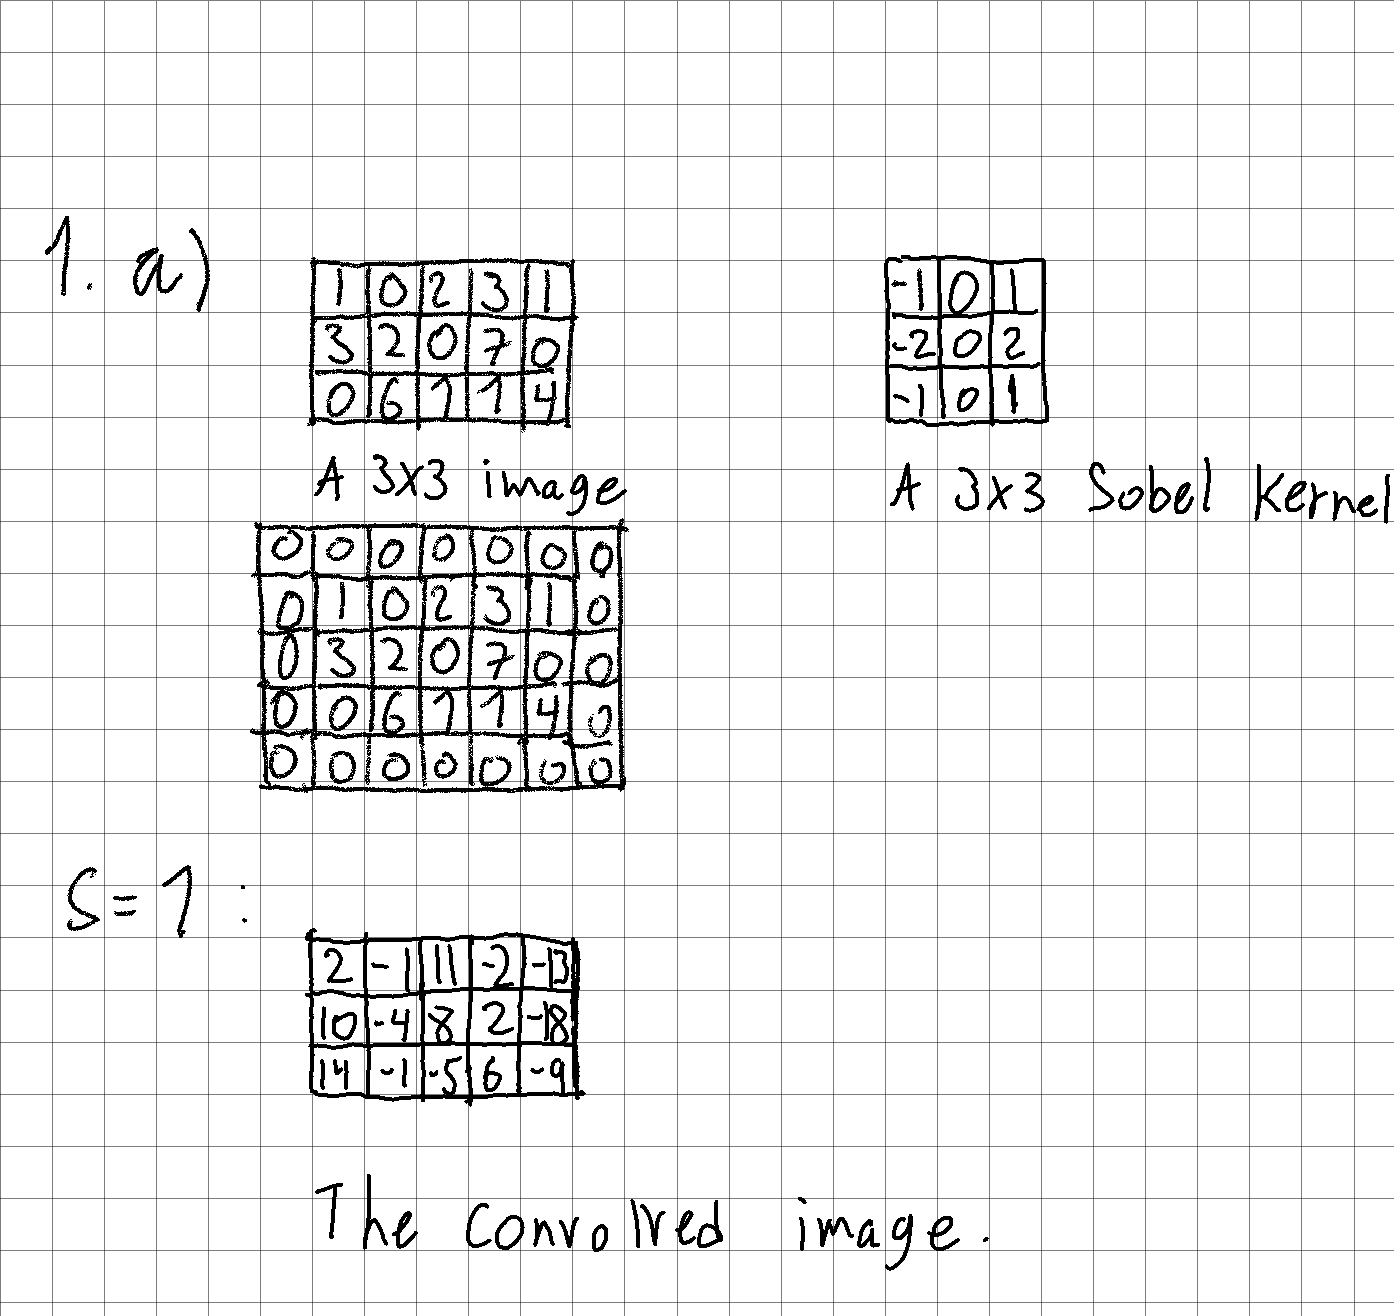 1. a)
1 0 2 3 1
3 2 0 7 0
0 6 1 1 4
A 3x3 image
-1 0 1
-2 0 2
-1 0 1
A 3x3 Sobel Kernel
0 0 0 0 0 0 0
0 1 0 2 3 1 0
0 3 2 0 7 0 0
0 0 6 1 1 4 0
0 0 0 0 0 0 0
S=1:
2 -1 11 -2 -13
10 -4 8 2 -18
14 -1 -5 6 -9
The convolved image.